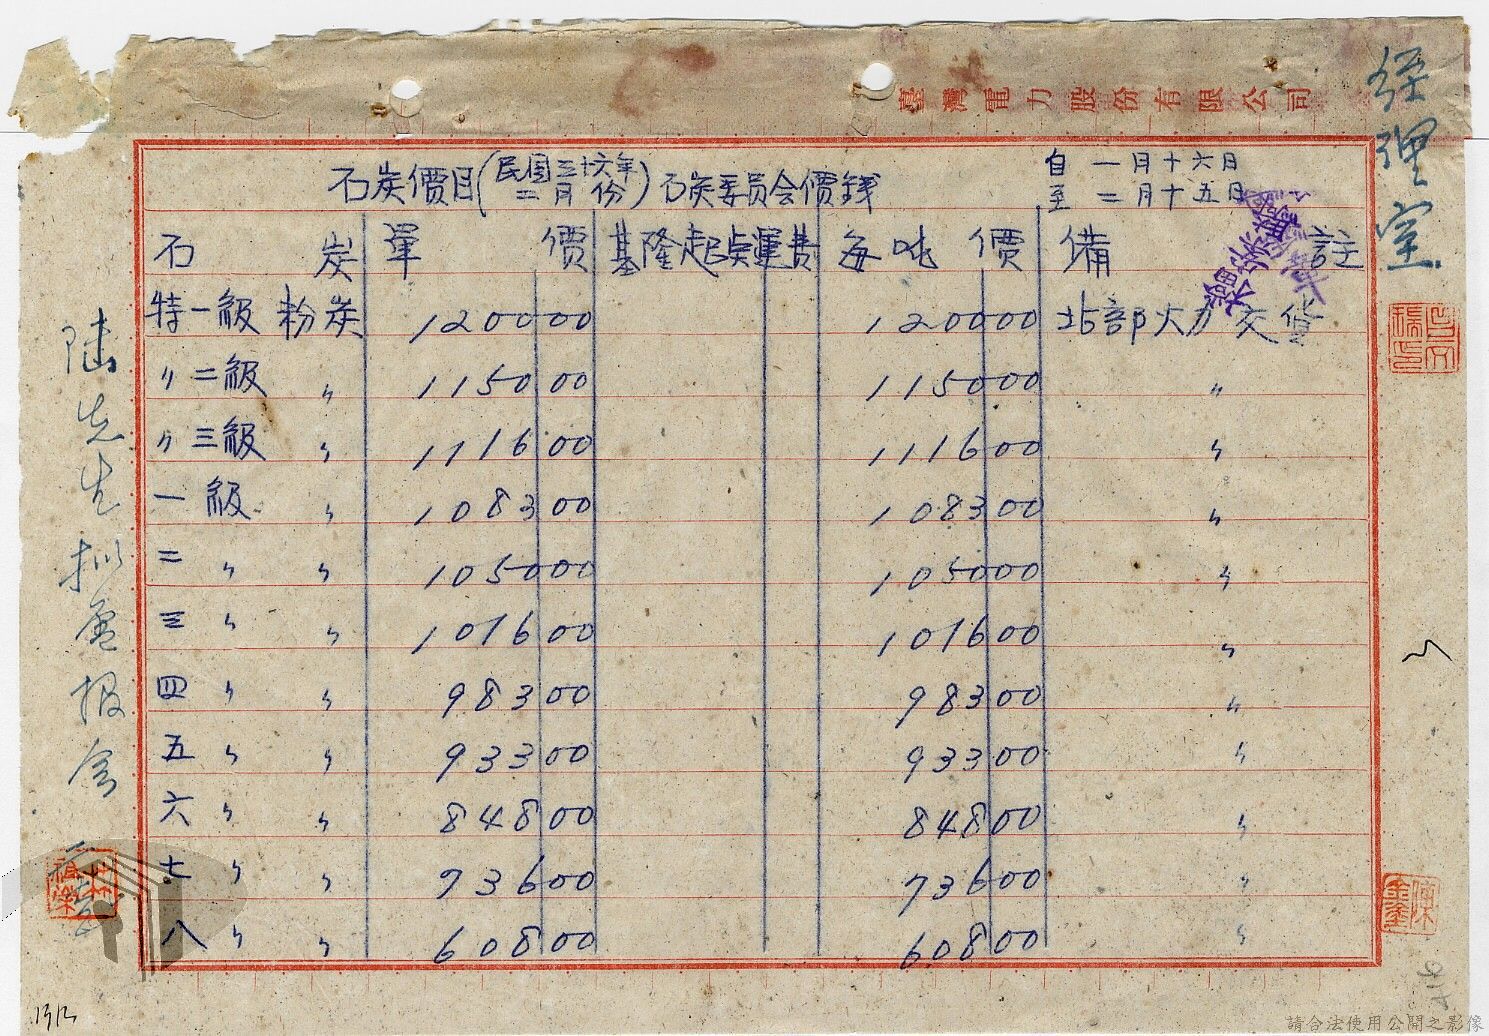 臺灣電力股份有限公司
經理室
石炭價目(民国三十六年二月份)石炭委員会價錢
自一月十六日
至二月十五日
石炭 單價 基隆起点運費 每吨價 備註
特一級粉炭 1200 00 1200 00 北部火力交貨
〃二級 〃 1150 00 1150 00 〃
〃三級 〃 1116 00 1116 00 〃
一級 〃 1083 00 1083 00 〃
二〃 〃 1050 00 1050 00 〃
三〃 〃 1016 00 1016 00 〃
四〃 〃 983 00 983 00 〃
五〃 〃 933 00 933 00 〃
六〃 〃 848 00 848 00 〃
七〃 〃 736 00 736 00 〃
八〃 〃 608 00 608 00 〃
陸先生
請合法使用公開之影像